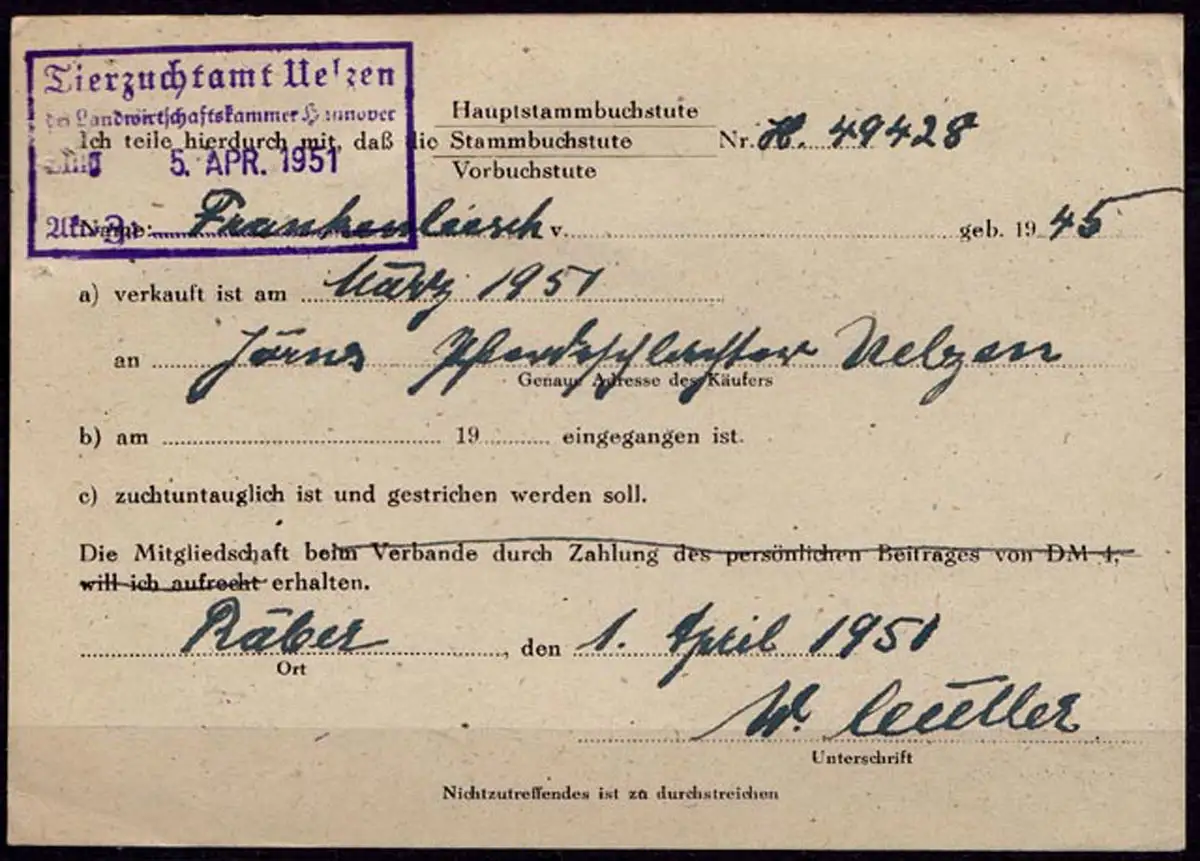 Tierzuchtamt Uelzen
der Landwirtschaftskammer Hannover
5. APR. 1951
Hauptstammbuchstute
Ich teile hierdurch mit, daß die Stammbuchstute Nr. H. 49428
Vorbuchstute
Name: Frankenliesch v. geb. 1945
a) verkauft ist am März 1951
an Jörns Pferdeschlachter Uelzen
Genaue Adresse des Käufers
b) am 19 eingegangen ist.
c) zuchtuntauglich ist und gestrichen werden soll.
Die Mitgliedschaft beim Verbande durch Zahlung des persönlichen Beitrages von DM 4,
will ich aufrecht erhalten.
Räber, den 1. April 1951
Ort
W. Müller
Unterschrift
Nichtzutreffendes ist zu durchstreichen